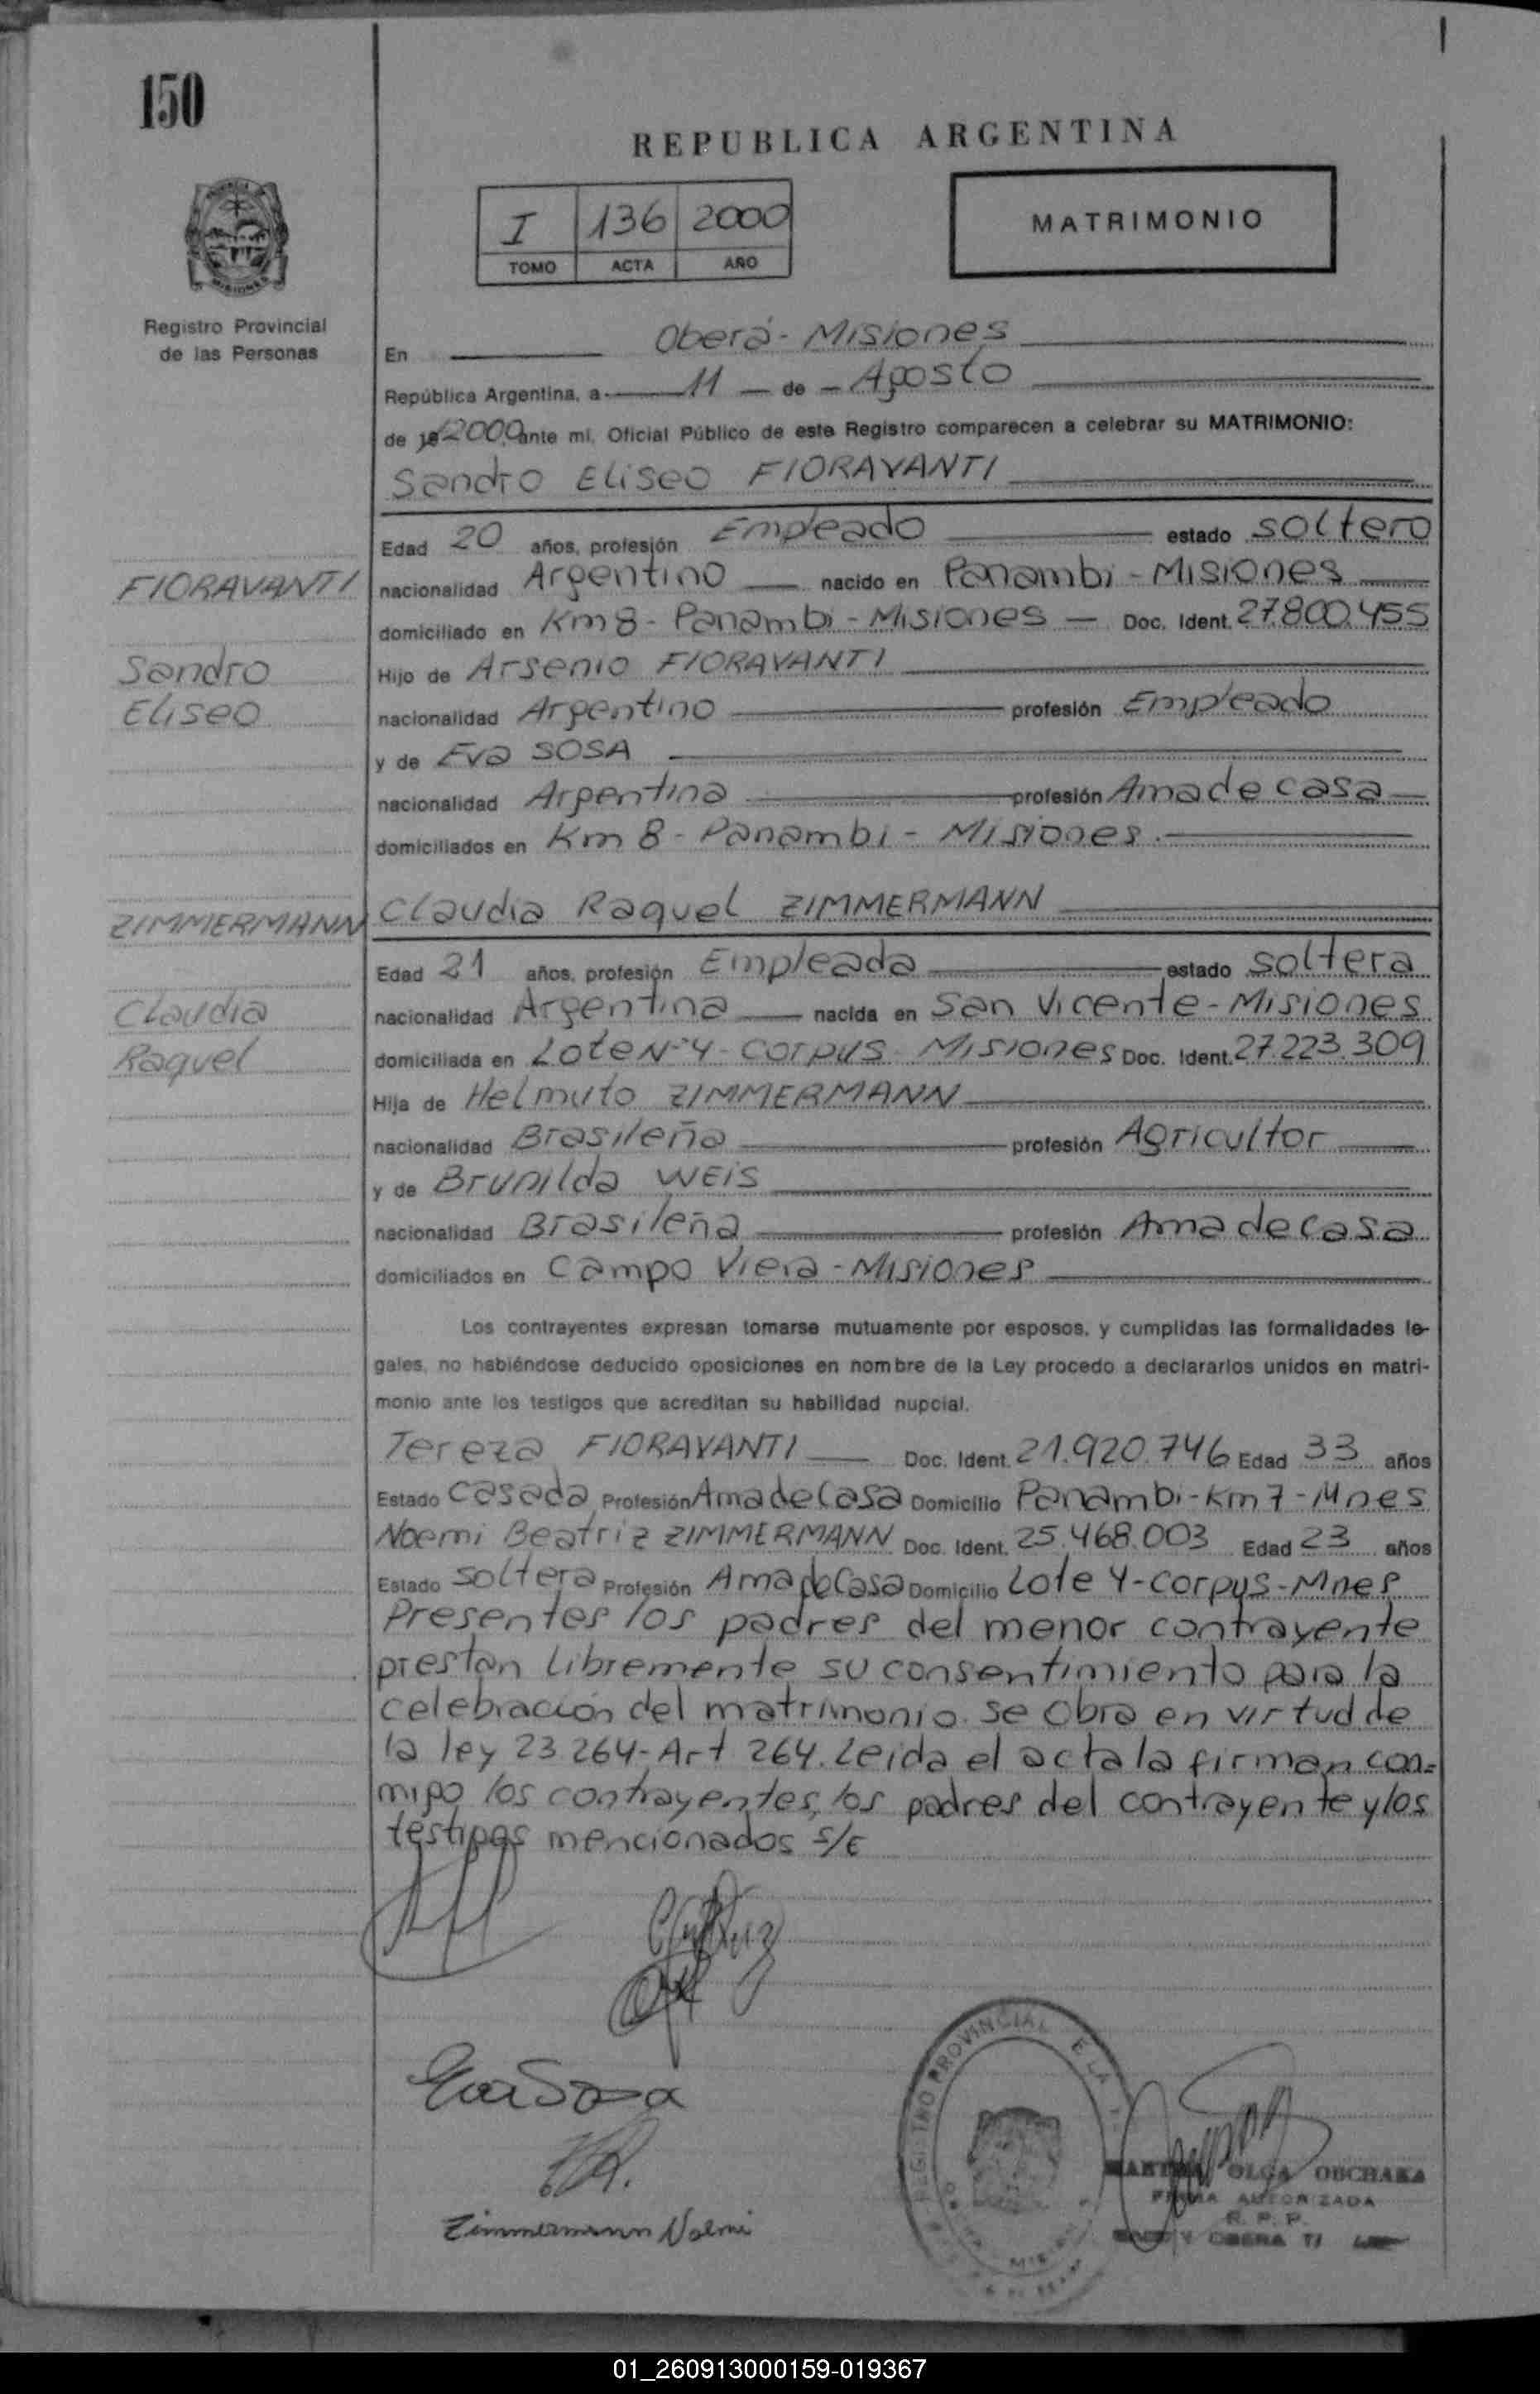 150
REPUBLICA ARGENTINA
I 136 2000
TOMO ACTA AÑO
MATRIMONIO
MISIONES
Registro Provincial
de las Personas
En Oberá - Misiones
República Argentina, a 11 de Agosto
de 19 2000 ante mi, Oficial Público de este Registro comparecen a celebrar su MATRIMONIO:
Sandro Eliseo FIORAVANTI
Edad 20 años, profesión Empleado estado soltero
FIORAVANTI
nacionalidad Argentino nacido en Panambi - Misiones
domiciliado en Km 8 - Panambi - Misiones Doc. Ident. 27.800.455
Sandro
Hijo de Arsenio FIORAVANTI
Eliseo
nacionalidad Argentino profesión Empleado
y de Eva SOSA
nacionalidad Argentina profesión Ama de casa
domiciliados en Km 8 - Panambi - Misiones.
ZIMMERMANN
Claudia Raquel ZIMMERMANN
Edad 21 años, profesión Empleada estado soltera
Claudia
nacionalidad Argentina nacida en San Vicente - Misiones
Raquel
domiciliada en Lote Nº 4 - Corpus - Misiones Doc. Ident. 27.223.309
Hija de Helmuto ZIMMERMANN
nacionalidad Brasileña profesión Agricultor
y de Brunilda WEIS
nacionalidad Brasileña profesión Ama de casa
domiciliados en Campo Viera - Misiones
Los contrayentes expresan tomarse mutuamente por esposos, y cumplidas las formalidades le-
gales, no habiéndose deducido oposiciones en nombre de la Ley procedo a declararlos unidos en matri-
monio ante los testigos que acreditan su habilidad nupcial.
Tereza FIORAVANTI Doc. Ident. 21.920.746 Edad 33 años
Estado Casada Profesión Ama de Casa Domicilio Panambi - Km 7 - Mnes
Noemi Beatriz ZIMMERMANN Doc. Ident. 25.468.003 Edad 23 años
Estado soltera Profesión Ama de Casa Domicilio Lote 4 - Corpus - Mnes
Presentes los padres del menor contrayente
prestan libremente su consentimiento para la
celebración del matrimonio. Se obra en virtud de
la ley 23.264 - Art 264. Leida el acta la firman con-
migo los contrayentes, los padres del contrayente y los
testigos mencionados S/E
Eva Sosa
Zimmermann Noemi
REGISTRO PROVINCIAL DE LA
OLGA OBCHAKA
FIRMA AUTORIZADA
R. P. P.
OBERA
01_260913000159-019367